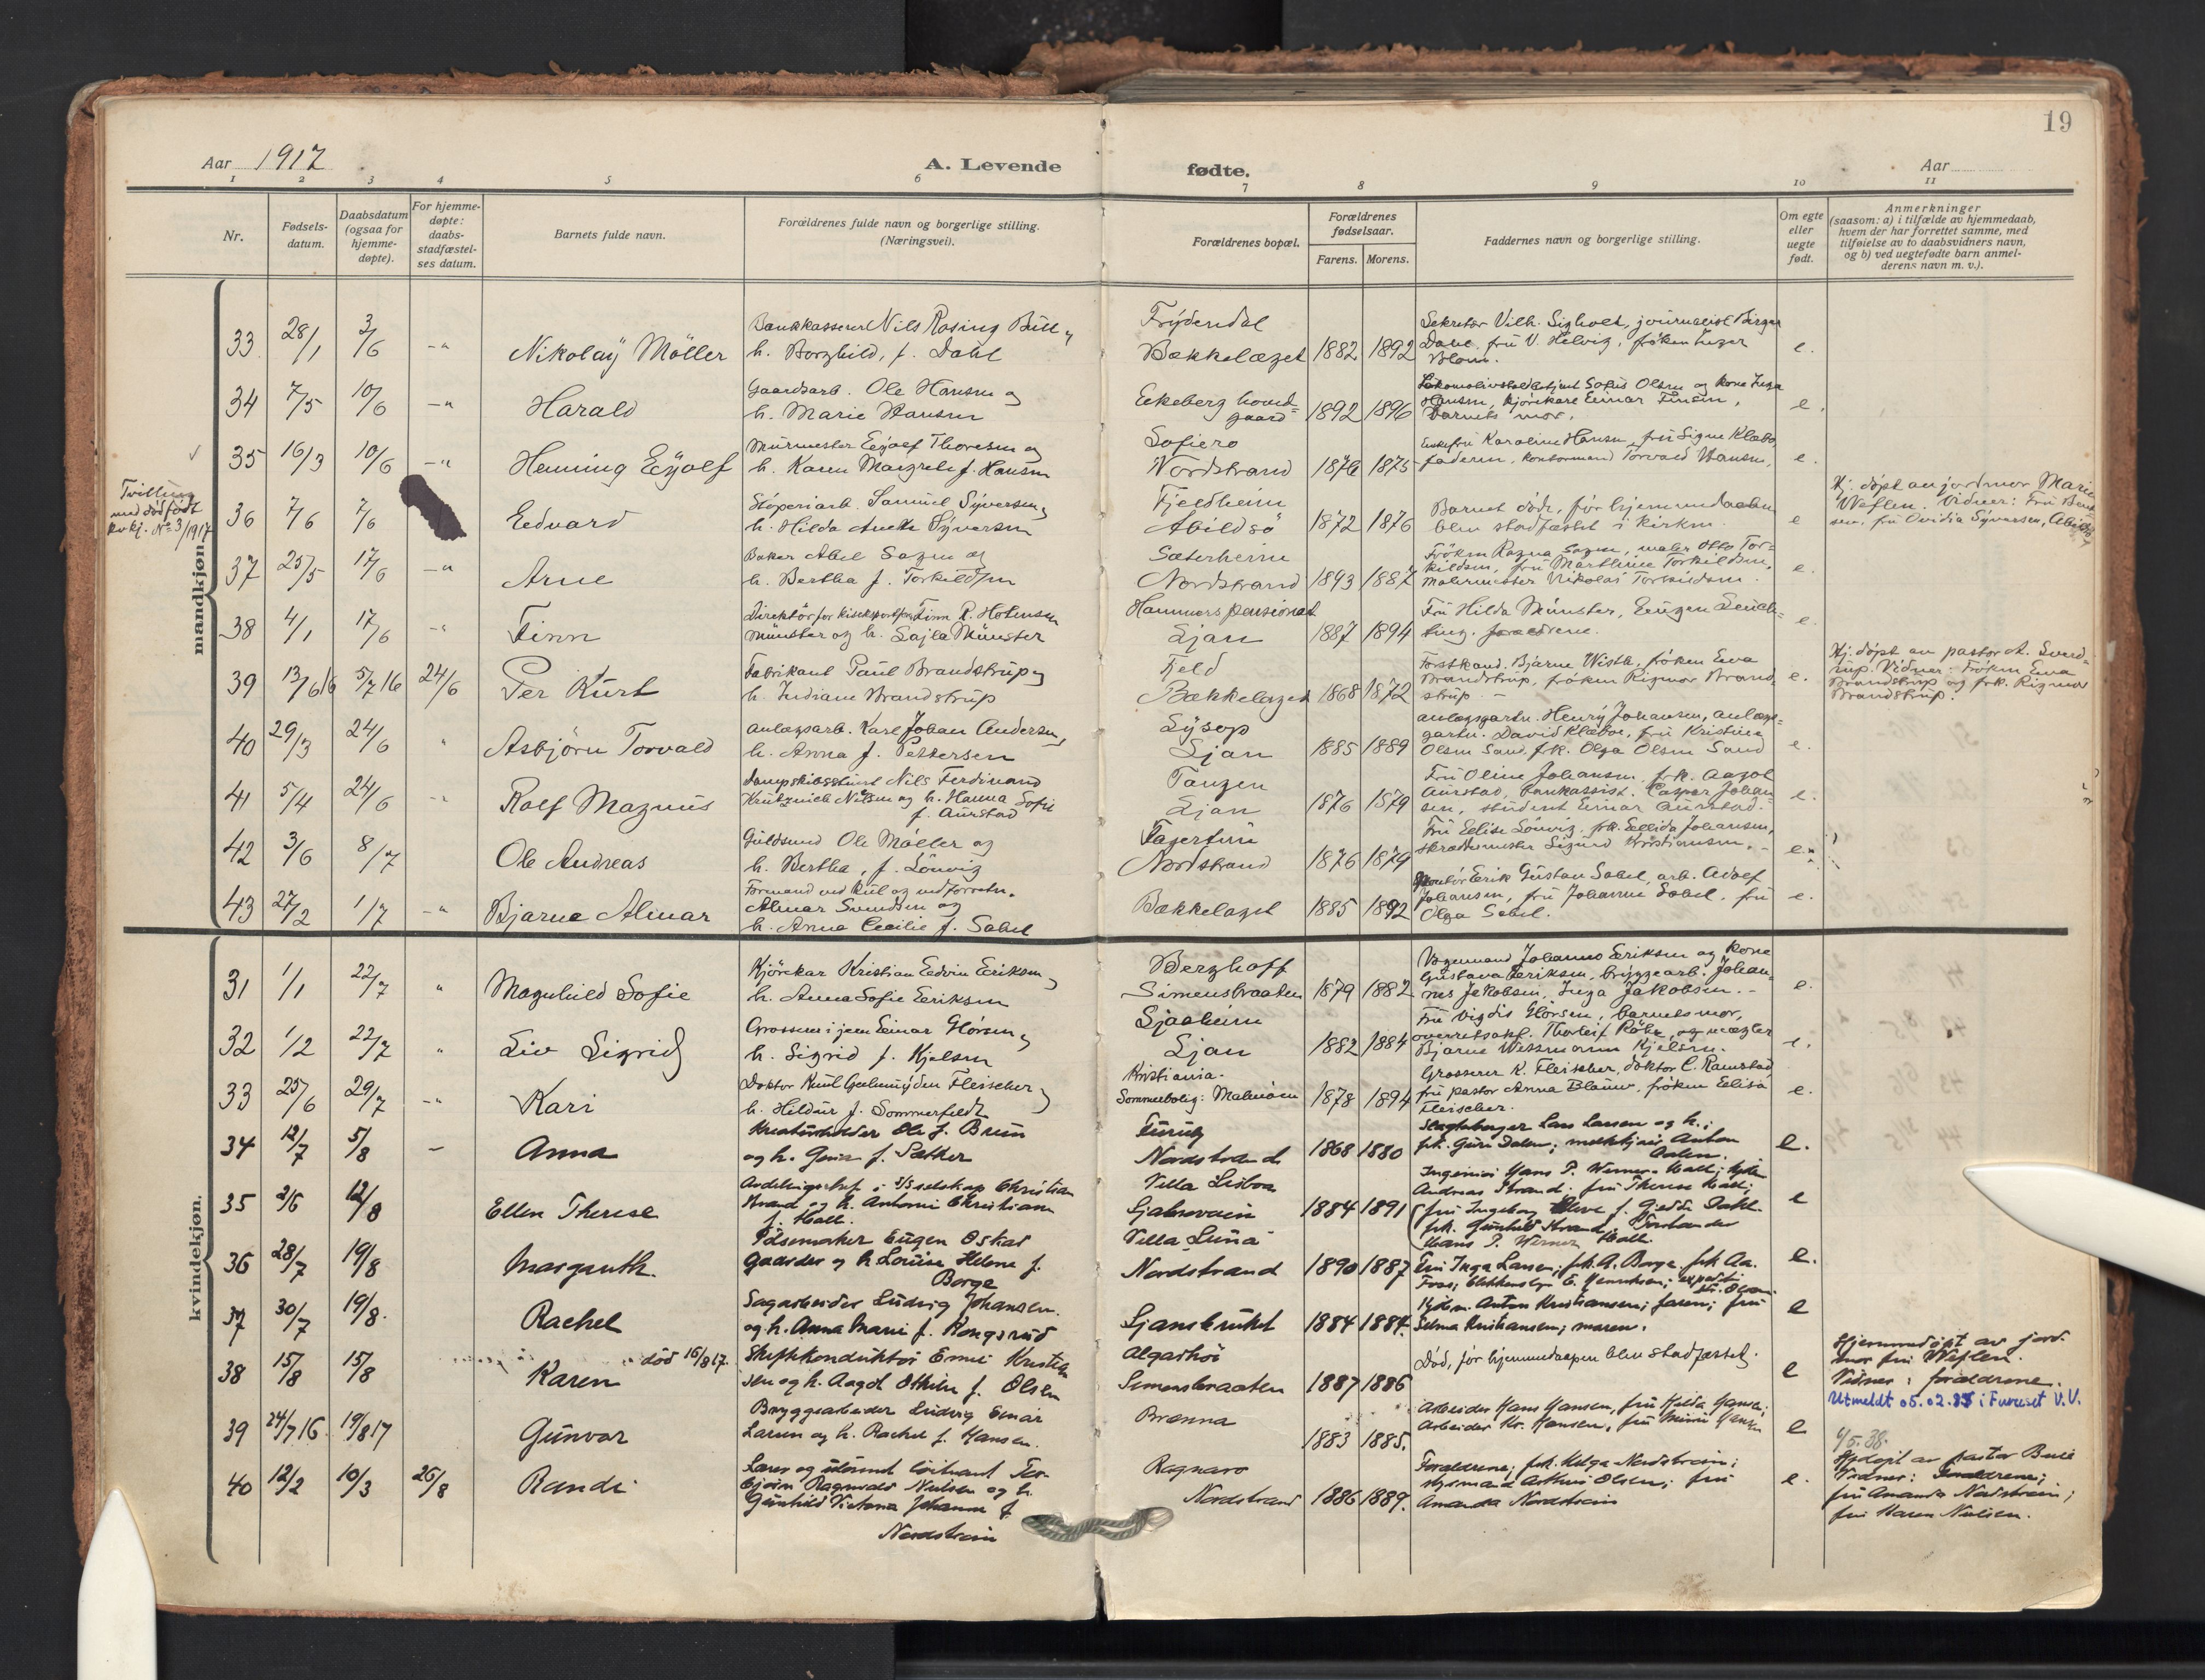 19
Aar 1917
A. Levende
fødte.
Aar
1 2 3 4 5 6 7 8 9 10 11
Nr.
Fødsels-
datum.
Daabsdatum
(ogsaa for
hjemme-
døpte).
For hjemme-
døpte:
daabs-
stadfæstel-
ses datum.
Barnets fulde navn.
Forældrenes fulde navn og borgerlige stilling.
(Næringsvei).
Forældrenes bopæl.
Forældrenes
fødselsaar.
Farens. Morens.
Faddernes navn og borgerlige stilling.
Om egte
eller
uegte
født.
Anmerkninger
(saasom: a) i tilfælde av hjemmedaab,
hvem der har forrettet samme, med
tilføielse av to daabsvidners navn,
og b) ved uegtefødte barn anmel-
derens navn m. v.).
mandkjøn
33 28/1 3/6 -"- Nikolaÿ Möller
Bankkasserer Nils Rosing Bull og
h. Borghild, f. Dahl
Frydendal
Bækkelaget 1882 1892
Sekretær Vilh. journalist Birger
Dahl, fru V. Helvig, fröken Inger
Blom.
e.
34 7/5 10/6 -"- Harald
Gaardsarb. Ole Hansen og
h. Marie Hansen
Ekeberg hoved=
gaard 1892 1896
Sofus Olsen og kone Inga
Hansen, kjörekarl Einar
barnets mor.
e.
35 16/3 10/6 -"- Henning Eÿolf
Murmester Eÿolf Thoresen og
h. Karen Margrete f. Hansen
Sofiero
Nordstrand 1876 1875
Enkefru Karoline Hansen, fru Signe Klæbo,
faderen, kontormand Torvald Hansen,
e.
Tvilling
med dödfödt
kvkj. No 3/1917
36 7/6 7/6 Edvard
Stöperiarb. Samuel Sÿversen og
h. Hilda Anette Sÿversen
Fjeldheim
Abildsö 1872 1876
Barnet döde, för hjemmedaaben
blev stadfæstet i kirken.
e
Hj. döpt av jordmor Marie
Weflen. Vidner: Fru
fru Ovidia Sÿversen, Abildsö
37 25/5 17/6 -"- Arne
Baker Abel Sagen og
h. Bertha f. Torkildsen
Sæterheim
Nordstrand 1893 1887
Fröken Ragna Sagen, maler Otto Tor=
kildsen, fru Marthine Torkildsen,
malermester Nikolai Torkildsen.
e.
38 4/1 17/6 -"- Finn
Direktör for Finn R. Holmsen
Münster og h. Lajla Münster
Hammers pensionat
Ljan 1887 1894
Fru Hilda Münster, Eugen
forældrene.
e.
39 13/6 16 5/7 16 24/6 Per Kurt
Fabrikant Paul Brandstrup og
h. Indiane Brandstrup
Fjeld
Bækkelaget 1868 1872
Forstkand. Bjarne Wisth, fröken Ewa
Brandstrup, fröken Rigmor Brand-
strup.
e.
Hj. döpt av pastor A. Svend-
rup. Vidner: Fröken Ewa
Brandstrup og frk. Rigmor
Brandstrup.
40 29/3 24/6 " Asbjörn Torvald
Anlægsarb. Karl Johan Andersen,
h. Anna f. Pettersen
Lysop
Ljan 1885 1889
Anlægsgartn. Henrÿ Johansen, anlægs-
gartn. David Klæboe, fru Kristine
Olsen Sand, frk. Olga Olsen Sand
e.
41 5/4 24/6 -"- Rolf Magnus
Nils Ferdinand
Nilsen og h. Hanna Sofie
f. Aurstad
Tangen
Ljan 1876 1879
Fru Oline Johansen, frk. Aagot
Aurstad, bankassist. Caspar Johan-
sen, student Einar Aurstad.
e.
42 3/6 8/7 Ole Andreas
Guldsmed Ole Möller og
h. Bertha, f. Lönvig
Fagerfuru
Nordstrand 1876 1879
Fru Elise Lönvig, frk. Ellida Johansen,
skræddermester Sigurd Kristiansen.
e.
43 27/2 1/7 -"- Bjarne Almar
Formand ved kul og vedforretn.
Almar Svendsen og
h. Anna Cecilie f. Sabel
Bækkelaget 1885 1892
Erik Gustav Sabel, arb. Adolf
Johansen, fru Johanne Sabel, fru
Olga Sabel.
e.
kvindekjøn.
31 1/1 22/7 " Magnhild Sofie
Kjörekar Kristian Edvin Eriksen og
h. Anna Sofie Eriksen
Berghoff
Simensbraaten 1879 1882
Vognmand Johannes Eriksen og kone
Gustava Eriksen, bryggearb. Johan-
nes Jakobsen, Inga Jakobsen.
e.
32 1/2 22/7 " Liv Sigrid
Grosserer i jern Einar Glörsen og
h. Sigrid f. Kjelsen
Sjaaheim
Ljan 1882 1884
Fru Vigdis Glörsen, barnets mor,
overretssakf. Thorleif og mægler
Bjarne Wessmann Kjelsen.
e.
33 25/6 29/7 -"- Kari
Doktor Knut Fleischer og
h. Hildur f. Sommerfeldt
Kristiania.
Sommerbolig: Malmöen 1878 1894
Grosserer K. Fleischer, doktor C. Ramstad,
fru pastor Anna Blauw, fröken Elisa
Fleischer.
e.
34 12/7 5/8 - Anna
Ole J. Bruun
og h. f. Sæther
Furuly
Nordstrand 1868 1880
Lars Larsen og h.;
frk. Guri Dalen; Anton
Dalen.
e.
35 2/6 12/8 Ellen Therese
Avdelingschef i selskap Christian
Strand og h. Antonie Christiane
f. Hall.
Villa Lisboa
Ljabroveien 1884 1891
Ingeniör Hans P. Werner Hall;
Andreas Strand; fru Therese Hall;
fru Ingeborg f. Dahl.
frk. Gunhild Strand,
Hans P. Werner Hall.
e
36 28/7 19/8 Margreth.
Pölsemaker Eugen Oskar
Gaarder og h. Louise Helene f.
Borge
Villa "Luna"
Nordstrand 1890 1887
Fru Inga Larsen; frk. A. Borge, frk Aa.
Foss; E. Henriksen;
e.
37 30/7 19/8. Rachel
Sagarbeider Ludvig Johansen.
og h. Anna Marie f. Kongsrud
Ljansbruket 1884 1884.
Anton Kristiansen; faren; fru
Selma Kristiansen; moren.
e
38 15/8 15/8 död 16/8 17. Karen
Skiftkonduktör Emil Kristian-
sen og h. Aagot Othilie f. Olsen
Algarhöi
Simensbraaten 1887 1886
Död, för hjemmedaapen blev stadfæstet.
e
Hjemmedöpt av jord-
mor fru Weflen.
Vidner: forældrene.
Utmeldt 05.02.85 i Furuset V.V.
39 24/7 16 19/8 17 Gunvor
Bryggearbeider Ludvig Einar
Larsen og h. Rachel f. Hansen.
Brænna
1883 1885.
Arbeider Hans Hansen, fru Hilda Hansen;
Arbeider Kr. Hansen, fru Hansen
e
6/5.38.
40 12/2 10/3 26/8 Randi
Lærer og Tor-
björn Ragnvald Nielsen og h.
Gunhild Victoria Johanne f.
Nordström
Ragnaro
Nordstrand 1886 1889.
Forældrene; frk. Helga Nordström;
styrmand Arthur Olsen; fru
Amanda Nordström
e.
Hjdöpt av pastor Bull
Vidner: Forældrene;
fru Amanda Nordström;
fru Maren Nielsen.